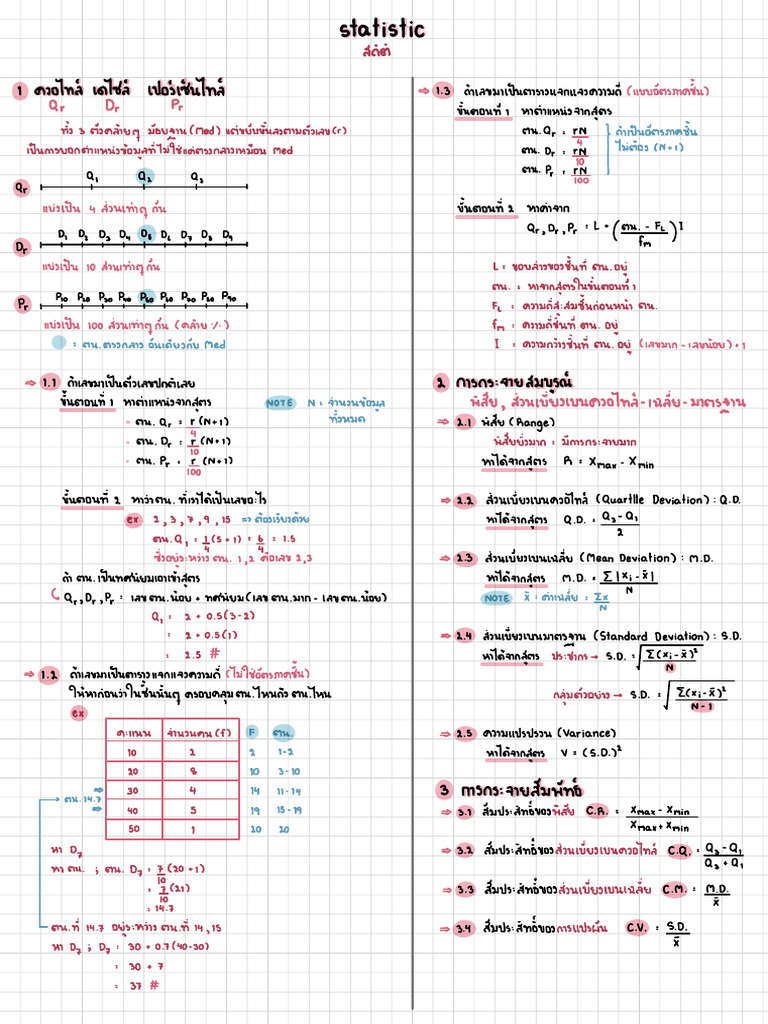 statistic
สถิติ
1 ควอไทล์ เดไซล์ เปอร์เซ็นไทล์
Qr Dr Pr
ทั้ง 3 ตัวคล้ายๆ มัธยฐาน (Med) แต่ขยับขึ้นลงตามตัวเลข (r)
เป็นการบอกตำแหน่งข้อมูลที่ไม่ใช่แค่ตรงกลางเหมือน Med
Qr Q1 Q2 Q3
แบ่งเป็น 4 ส่วนเท่าๆกัน
Dr D1 D2 D3 D4 D5 D6 D7 D8 D9
แบ่งเป็น 10 ส่วนเท่าๆกัน
Pr P10 P20 P30 P40 P50 P60 P70 P80 P90
แบ่งเป็น 100 ส่วนเท่าๆกัน (คล้าย %)
= ตน.ตรงกลาง อันเดียวกับ Med
⇒ 1.1 ถ้าเลขมาเป็นตัวเลขปกติเลย
ขั้นตอนที่ 1 หาตำแหน่งจากสูตร
NOTE N = จำนวนข้อมูล
ทั้งหมด
• ตน. Qr = r/4 (N+1)
• ตน. Dr = r/10 (N+1)
• ตน. Pr = r/100 (N+1)
ขั้นตอนที่ 2 หาว่าตน. ที่เราได้เป็นเลขอะไร
ex 2 , 3 , 7 , 9 , 15 ⇒ ต้องเรียงด้วย
ตน. Q1 = 1/4 (5+1) = 6/4 = 1.5
ซึ่งอยู่ระหว่าง ตน. 1 , 2 คือเลข 2,3
ถ้า ตน.เป็นทศนิยมเอาเข้าสูตร
Qr,Dr,Pr = เลขตน.น้อย + ทศนิยม (เลขตน.มาก - เลขตน.น้อย)
Q1 = 2 + 0.5(3-2)
= 2 + 0.5(1)
= 2.5 #
⇒ 1.2 ถ้าเลขมาเป็นตารางแจกแจงความถี่ (ไม่ใช่อัตรภาคชั้น)
ให้หาก่อนว่าในชั้นนั้นๆ ครอบคลุมตน.ไหนถึง ตน.ไหน
ex
คะแนน จำนวนคน (f) F ตน.
10 2 2 1-2
20 8 10 3-10
30 4 14 11-14
40 5 19 15-19
50 1 20 20
ตน. 14.7
หา D7
หาตน. ; ตน. D7 = 7/10 (20+1)
= 7/10 (21)
= 14.7
ตน.ที่ 14.7 อยู่ระหว่าง ตน.ที่ 14 , 15
หา D7 ; D7 = 30 + 0.7(40-30)
= 30 + 7
= 37 #
⇒ 1.3 ถ้าเลขมาเป็นตารางแจกแจงความถี่ (แบบอัตรภาคชั้น)
ขั้นตอนที่ 1 หาตำแหน่งจากสูตร
ตน. Qr = rN/4
ตน. Dr = rN/10
ตน. Pr = rN/100
ถ้าเป็นอัตรภาคชั้น
ไม่ต้อง (N+1)
ขั้นตอนที่ 2 หาค่าจาก
Qr , Dr , Pr = L + ((ตน. - FL)/fm) I
L = ขอบล่างของชั้นที่ ตน. อยู่
ตน. = หาจากสูตรในขั้นตอนที่ 1
FL = ความถี่สะสมชั้นก่อนหน้า ตน.
fm = ความถี่ชั้นที่ ตน. อยู่
I = ความกว้างชั้นที่ ตน. อยู่ (เลขมาก - เลขน้อย) + 1
2 การกระจายสมบูรณ์
พิสัย , ส่วนเบี่ยงเบนควอไทล์-เฉลี่ย-มาตรฐาน
⇒ 2.1 พิสัย (Range)
พิสัยยิ่งมาก = มีการกระจายมาก
หาได้จากสูตร R = Xmax - Xmin
⇒ 2.2 ส่วนเบี่ยงเบนควอไทล์ (Quartlle Deviation) : Q.D.
หาได้จากสูตร Q.D. = (Q3-Q1)/2
⇒ 2.3 ส่วนเบี่ยงเบนเฉลี่ย (Mean Deviation) : M.D.
หาได้จากสูตร M.D. = Σ|xi-x̄|/N
NOTE x̄ = ค่าเฉลี่ย = Σx/N
⇒ 2.4 ส่วนเบี่ยงเบนมาตรฐาน (Standard Deviation) : S.D.
หาได้จากสูตร ประชากร → S.D. = √(Σ(xi-x̄)²/N)
กลุ่มตัวอย่าง → S.D. = √(Σ(xi-x̄)²/(N-1))
⇒ 2.5 ความแปรปรวน (Variance)
หาได้จากสูตร V = (S.D.)²
3 การกระจายสัมพัทธ์
⇒ 3.1 สัมประสิทธิ์ของพิสัย C.R. = (Xmax - Xmin)/(Xmax + Xmin)
⇒ 3.2 สัมประสิทธิ์ของส่วนเบี่ยงเบนควอไทล์ C.Q. = (Q3 - Q1)/(Q3 + Q1)
⇒ 3.3 สัมประสิทธิ์ของส่วนเบี่ยงเบนเฉลี่ย C.M. = M.D./x̄
⇒ 3.4 สัมประสิทธิ์ของการแปรผัน C.V. = S.D./x̄